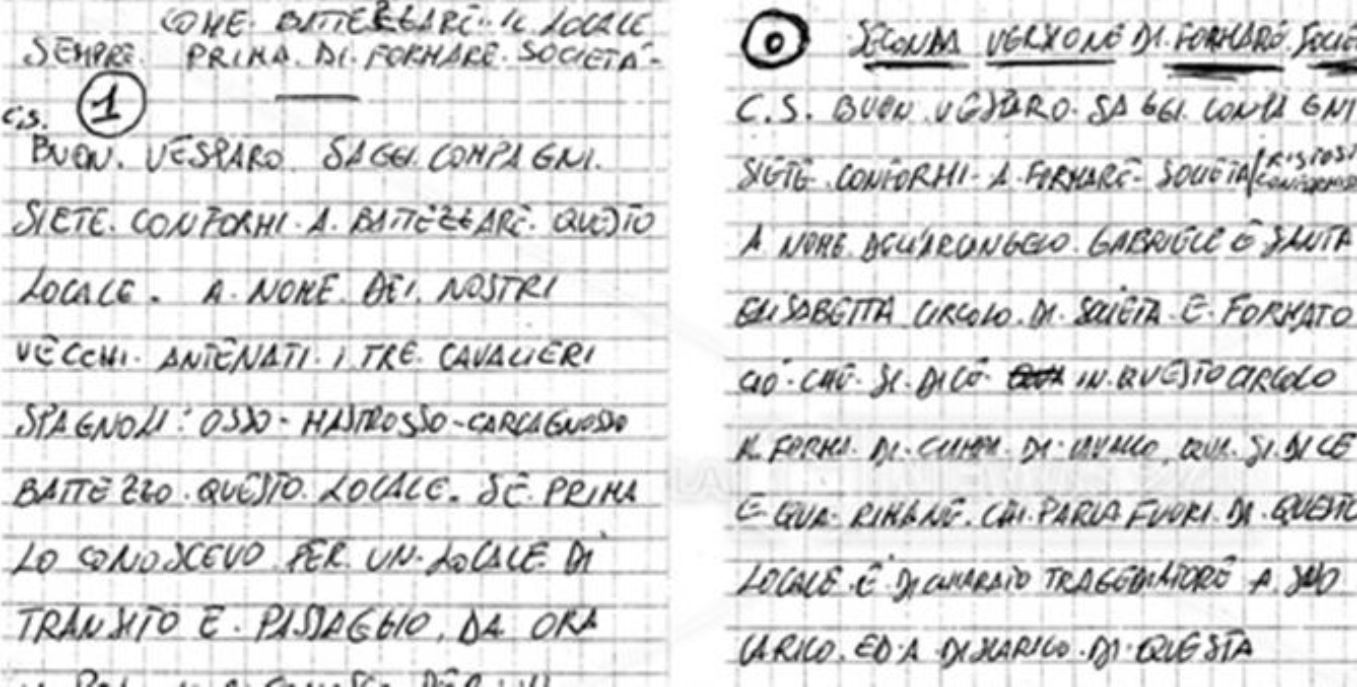 COME. BATTEZZARE. IL LOCALE
SEMPRE. PRIMA. DI. FORMARE. SOCIETA-
C.S. 1
BUON. VESPARO. SAGGI. COMPAGNI.
SIETE. CONFORMI. A. BATTEZZARE. QUESTO
LOCALE. A. NOME. DEI. NOSTRI
VECCHI. ANTENATI. I. TRE. CAVALIERI
SPAGNOLI: OSSO-MASTROSSO-CARCAGNOSSO
BATTEZZO. QUESTO. LOCALE. SE. PRIMA
LO CONOSCEVO PER. UN. LOCALE. DI
TRANSITO E. PASSAGGIO. DA ORA
0 SECONDA VERSIONE DI. FORMARE. SOCIE
C.S. BUON VESPARO. SAGGI. COMPAGNI
SIETE. CONFORMI. A FORMARE. SOCIETA
A NOME. DELL'ARCANGELO. GABRIELE E SANTA
ELISABETTA CIRCOLO. DI. SOCIETA. E. FORMATO
CIÓ. CHE. SI. DICE. IN. QUESTO CIRCOLO
A. FORMA. DI. DI. CAVALLO, QUA. SI. DICE
E QUA. RIMANE. CHI. PARLA FUORI. DA. QUESTO
LOCALE. E. DICHIARATO TRAGEDIATORE A. SUO
CARICO. ED. A DISCARICO. DI. QUESTA